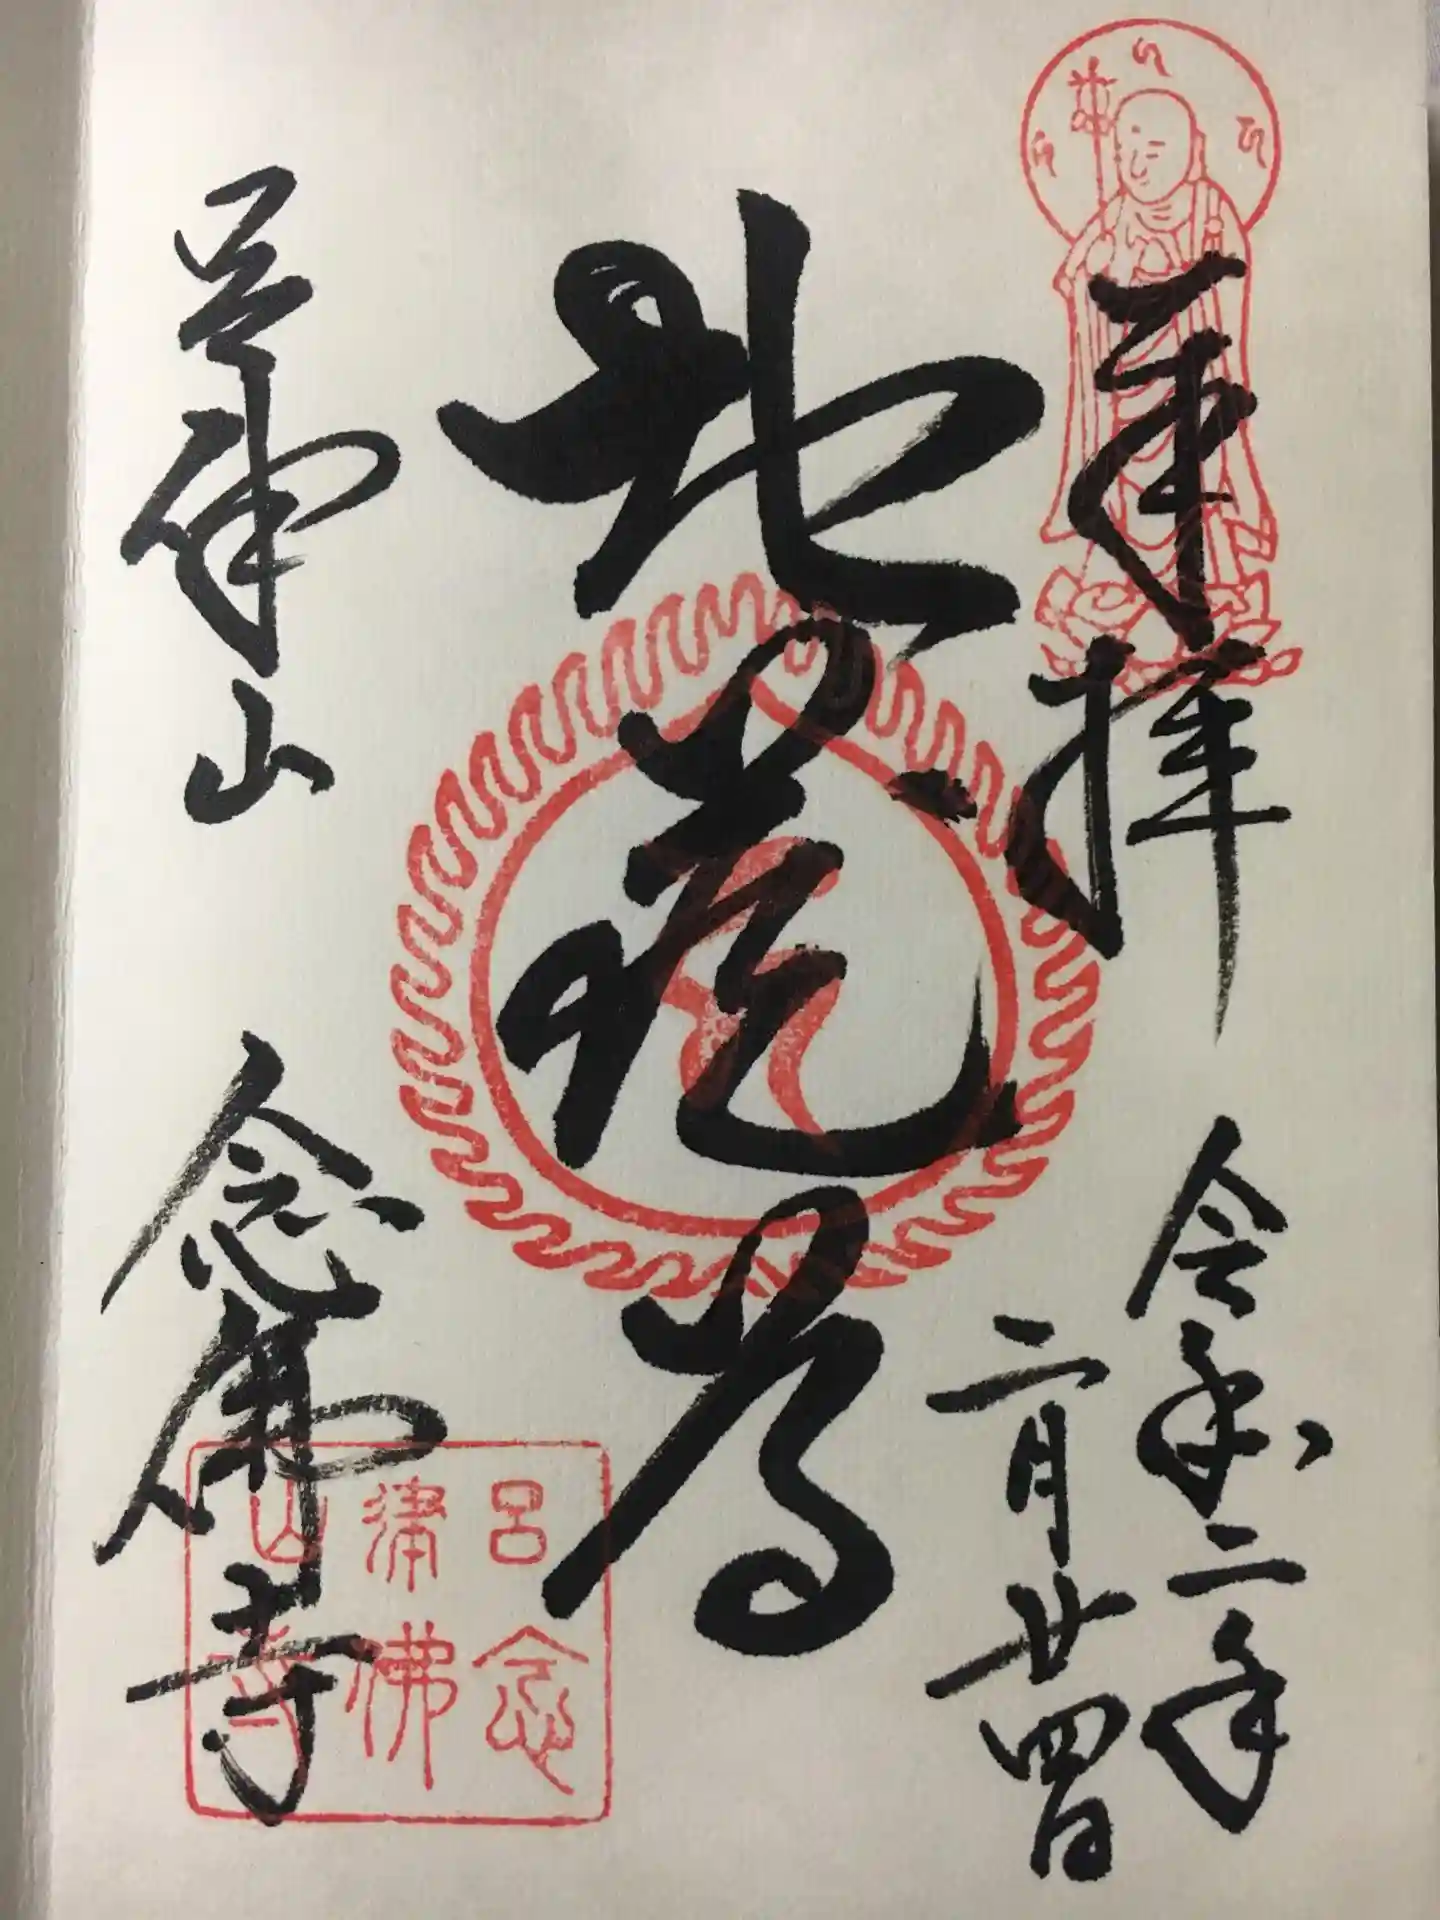 奉拝
令和二年
二月廿四日
地蔵尊
呂律山 念佛寺
呂律山
念佛寺